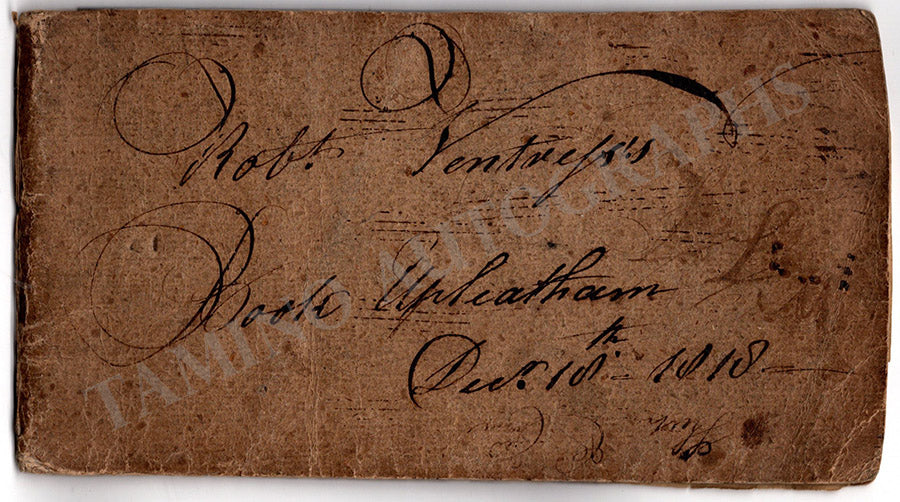 Robt. Ventress's
Book Upleatham
Decr. 18th 1818
TAMINO AUTOGRAPHS